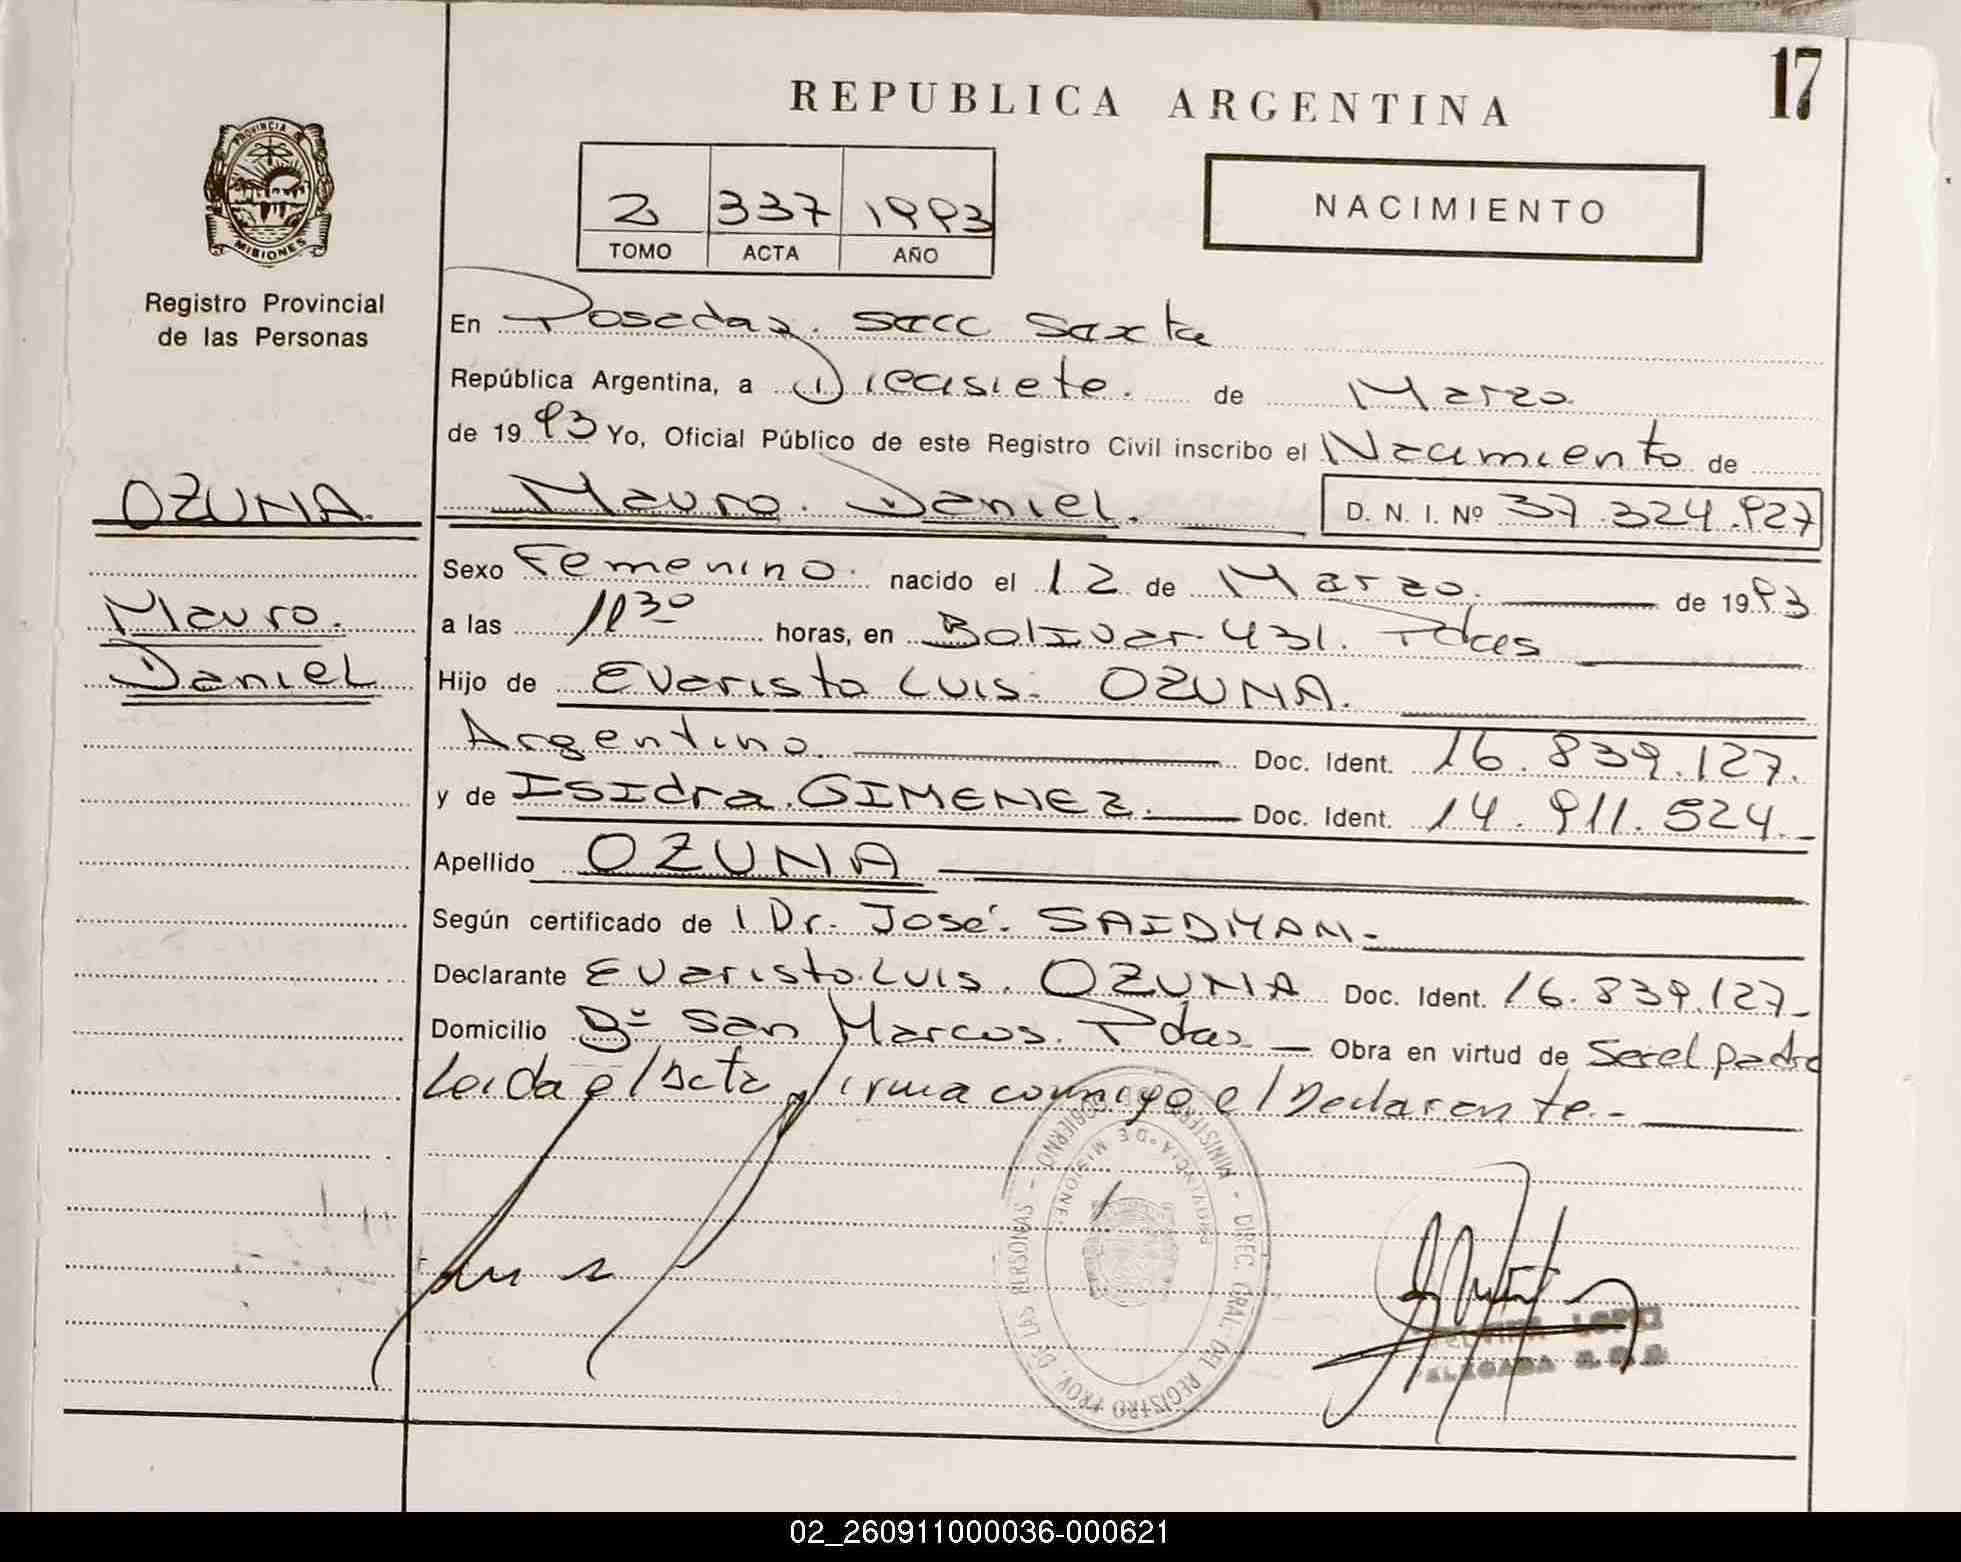 17
REPUBLICA ARGENTINA
PROVINCIA DE
MISIONES
Registro Provincial
de las Personas
2 337 1993
TOMO ACTA AÑO
NACIMIENTO
En Posadas. secc sexta
República Argentina, a Diecisiete. de Marzo
de 1993 Yo, Oficial Público de este Registro Civil inscribo el Nacimiento de
OZUNA. Mauro. Daniel. D. N. I. Nº 37.324.927
Sexo Femenino. nacido el 12 de Marzo. de 1993
Mauro. a las 11 30 horas, en Bolivar 431. Pdas
Daniel Hijo de Evaristo Luis. OZUNA.
Argentino. Doc. Ident. 16.839.127.
y de Isidra. GIMENEZ. Doc. Ident. 14.911.524.
Apellido OZUNA
Según certificado de l Dr. José. SAIDMAN-
Declarante Evaristo Luis. OZUNA Doc. Ident. 16.839.127-
Domicilio Bº San Marcos. Pdas — Obra en virtud de Ser el padre
Leida el Acta firma conmigo el Declarante.-
MINISTERIO DE GOBIERNO - DIREC. GRAL. DEL REGISTRO PROV. DE LAS PERSONAS -
PROVINCIA DE MISIONES
LOPEZ
02_260911000036-000621